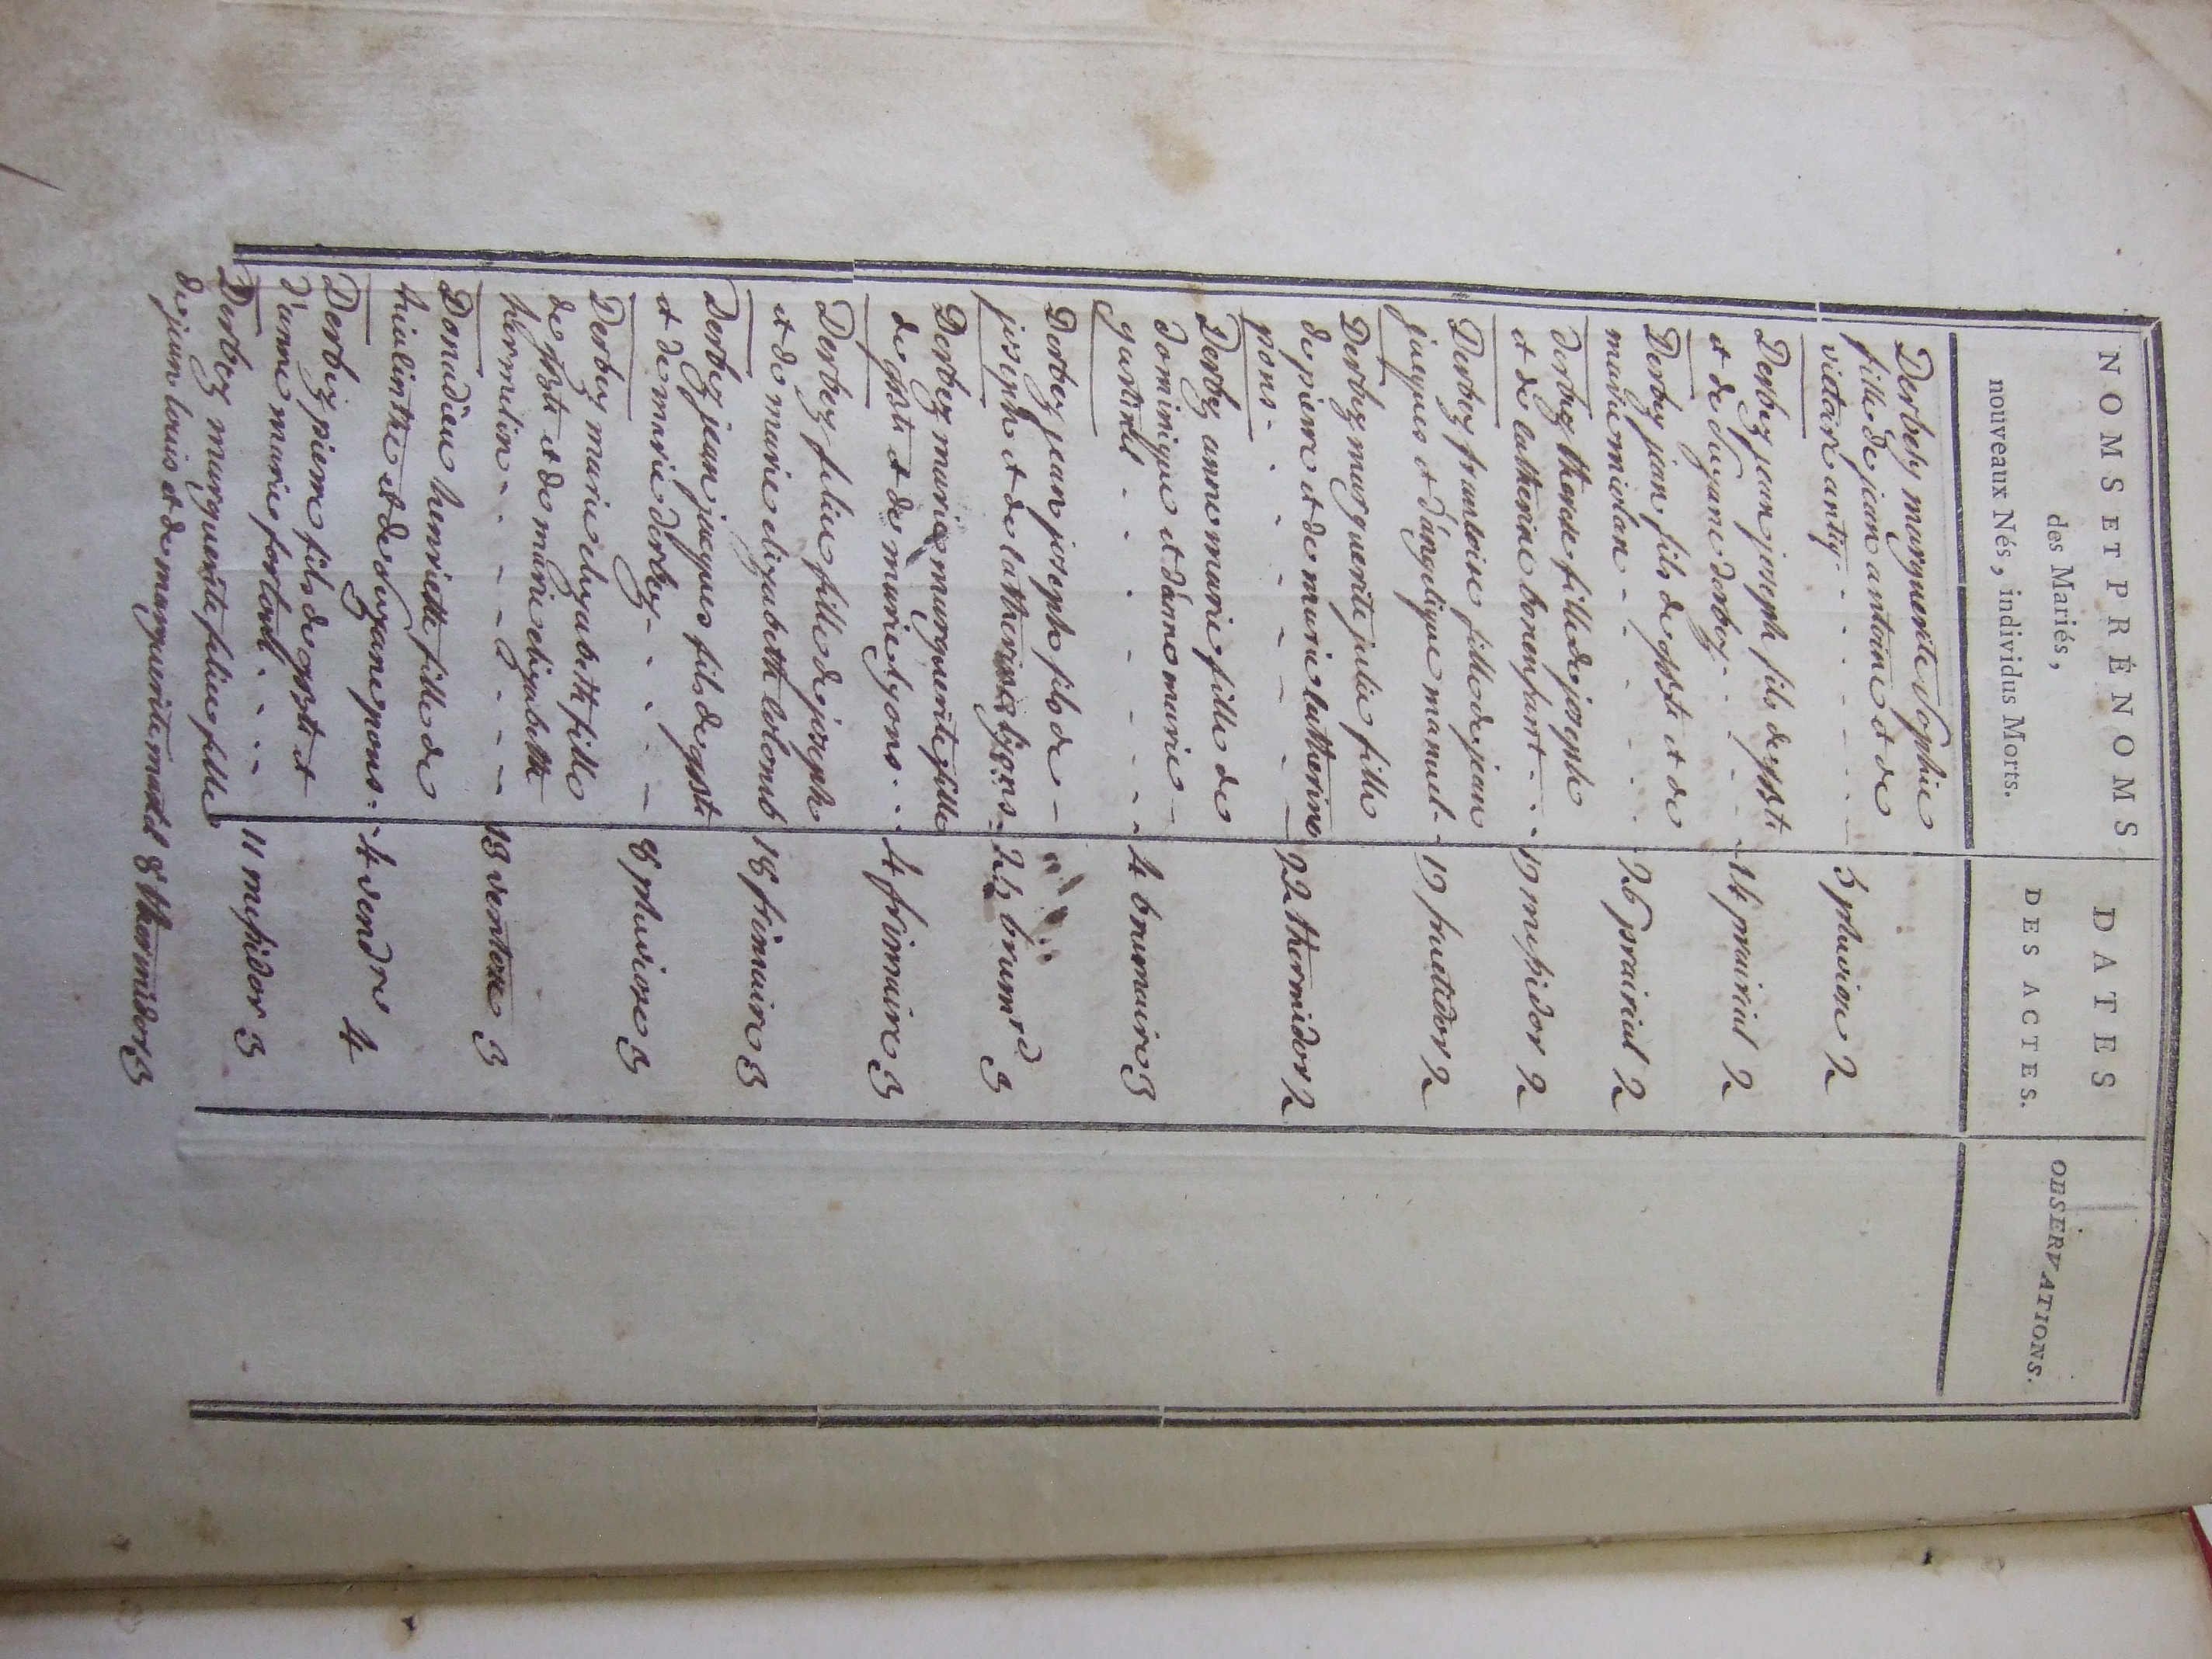 NOMS ET PRÉNOMS
des Mariés,
nouveaux Nés, individus Morts.
DATES
DES ACTES.
OBSERVATIONS.
Derbez marguerite Sophie
fille de jean antoine et de
victoire antiq - - - - - - 5 pluviose 2
Derbez jean joseph fils de jph bte
et de Suzane derbez - - - - 14 prairial 2
Derbez jean fils de jph bte et de
marie miolan - - - - - 26 prairial 2
derbez therese fille de joseph
et de catherine bonenfant - - - 19 messidor 2
Derbez francoise fille de jean
jacques et d'angelique manuel - 19 fructidor 2
Derbez marguerite julie fille
de pierre et de marie catherine
pons - - - - - - - 22 thermidor 2
Derbez anne marie fille de
dominique et d'anne marie -
gastinel - - - - - - 4 brumaire 3
Derbez jean joseph fils de -
joseph et de catherine lyons - brumre 3
Derbez marie marguerite fille
de et de marie lyons - - - 4 frimaire 3
Derbez felice fille de joseph
et de marie elizabeth colomb 18 frimaire 3
Derbez jean jacques fils de
et de marie derbez - - - - 8 pluviose 3
Derbez marie elizabeth fille
de et de marie elizabeth
hermelin - - - - - - 13 ventose 3
Donadieu henriette fille de
hiacinthe et de Suzane pons - 4 vendre 4
Derbez pierre fils de et
d'anne marie fortoul - - - - 11 messidor 3
Derbez marguerite felice fille
de jean louis et de marguerite 8 thermidor 3